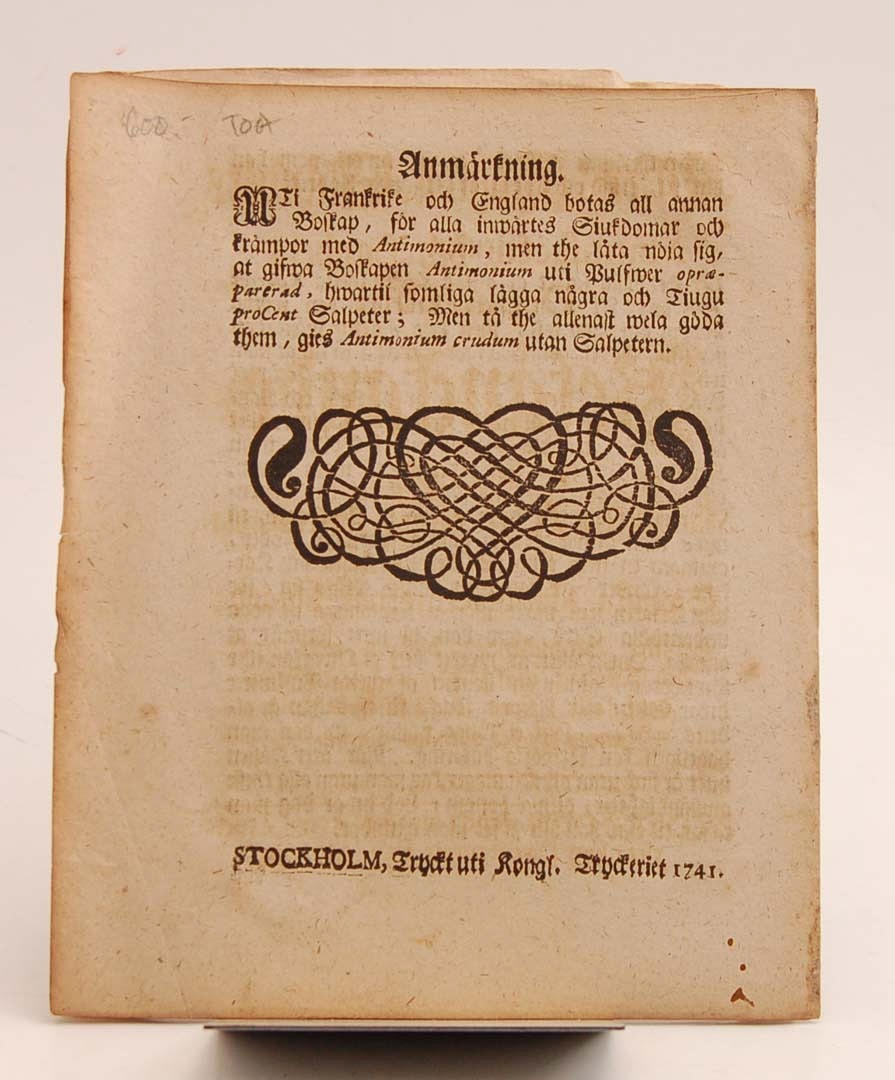 600:- TOA
Anmärkning.
UTi Frankrike och England botas all annan
Boskap, för alla inwärtes Siukdomar och
krämpor med Antimonium, men the låta nöja sig,
at gifwa Boskapen Antimonium uti Pulfwer opræ-
parerad, hwartil somliga lägga några och Tiugu
proCent Salpeter; Men tå the allenast wela göda
them, gies Antimonium crudum utan Salpetern.
STOCKHOLM, Tryckt uti Kongl. Tryckeriet 1741.